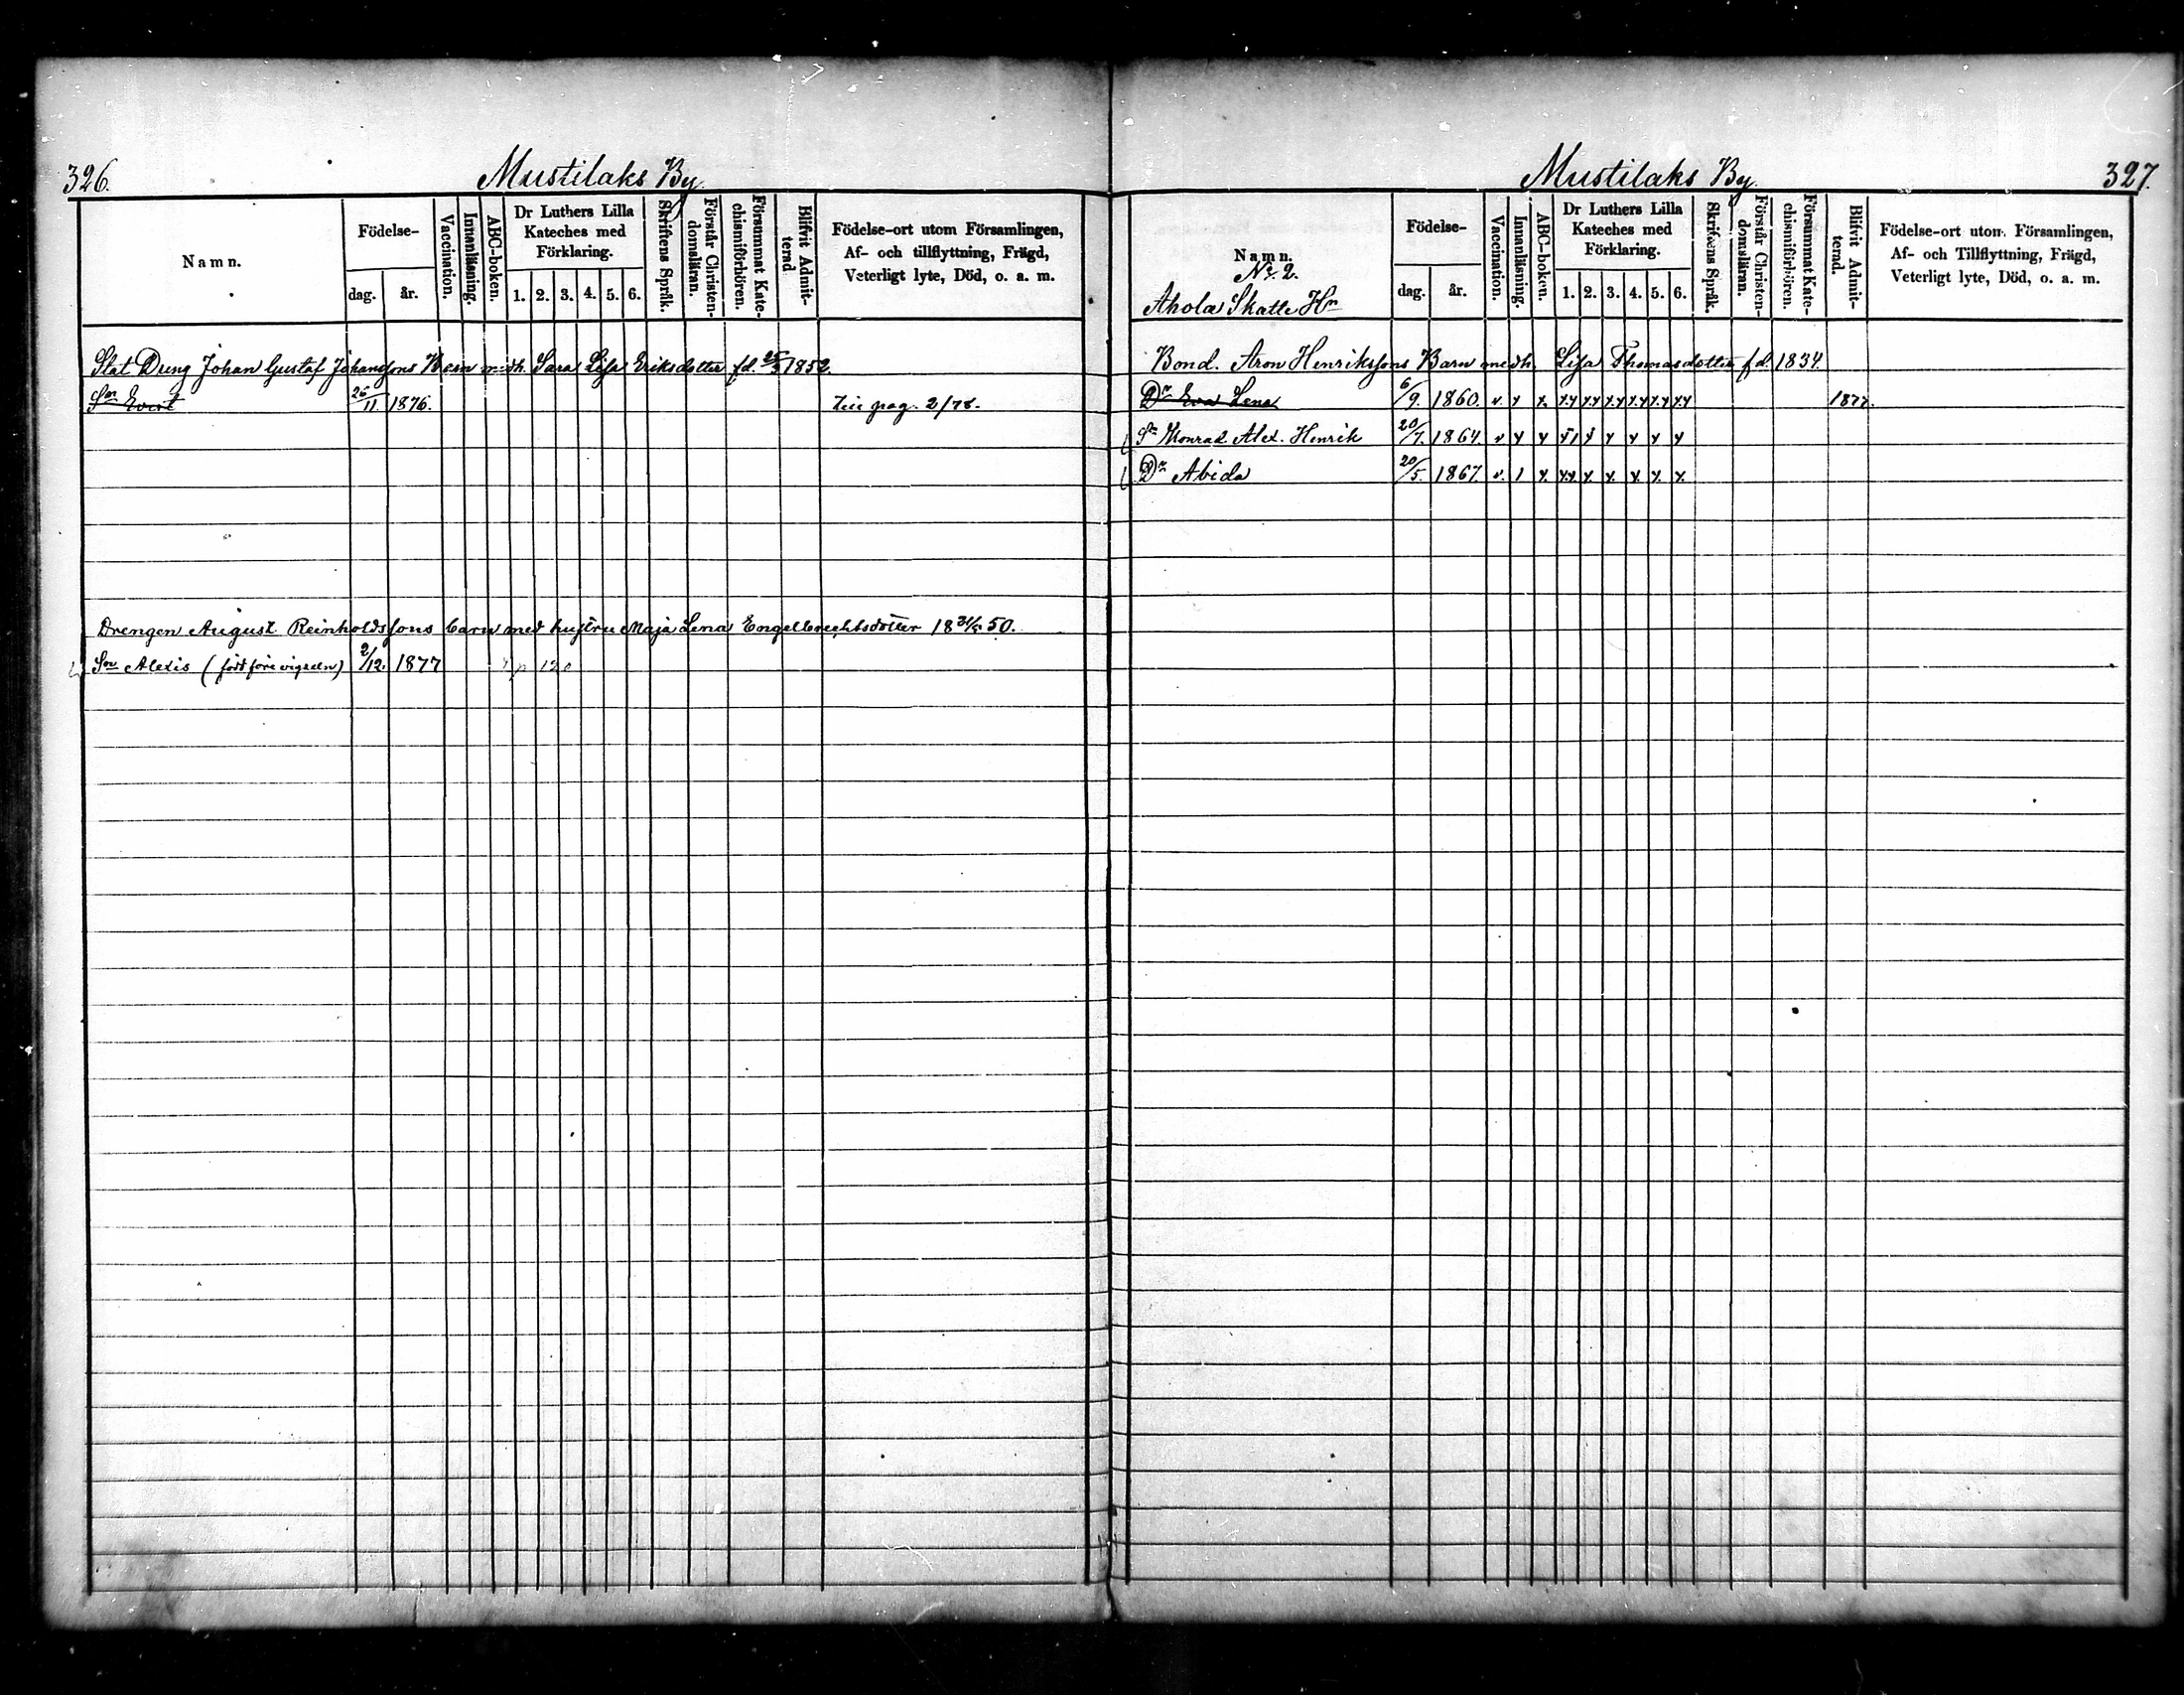 326.
Mustilaks By.
Namn.
Födelse-
dag.
år.
Vaccination.
Innanläsning.
ABC-boken.
Dr Luthers Lilla
Kateches med
Förklaring.
1. 2. 3. 4. 5. 6.
Skriftens Språk.
Förstår Christen-
domsläran.
Försummat Kate-
chismiförhören.
Blifvit Admit-
terad
Födelse-ort utom Församlingen,
Af- och tillflyttning, Frägd,
Veterligt lyte, Död, o. a. m.
Stat Dreng Johan Gustaf Johanssons Barn med h. Sara Lisa Eriksdotter fd. 25/3 1852.
Son Evert 26/11 1876. pag. 2/78.
Drengen August Reinholdssons barn med hustru Maja Lena Engelbrechtsdotter 18 50.
Son Alexis (född före vigseln) 2/12. 1877
Mustilaks By.
327.
Namn.
No. 2.
Ahola Skatte Hn
Födelse-
dag.
år.
Vaccination.
Innanläsning.
ABC-boken.
Dr Luthers Lilla
Kateches med
Förklaring.
1. 2. 3. 4. 5. 6.
Skriftens Språk.
Förstår Christen-
domslärann.
Försummat Kate-
chismiförhören.
Blifvit Admit-
terad.
Födelse-ort utom Församlingen,
Af- och Tillflyttning, Frägd,
Veterligt lyte, Död, o. a. m.
Bond. Aron Henrikssons Barn med h. Lisa Thomasdotter fd. 1834.
Dr Eva Lena 6/9. 1860. v. x x. xx xx xx xx xx xx 1877.
Sn Konrad Alex. Henrik 20/7. 1864. v x x x1 x x x x x
Dr Abida 20/5. 1867. v. 1 x. xx x. x. x. x. x.